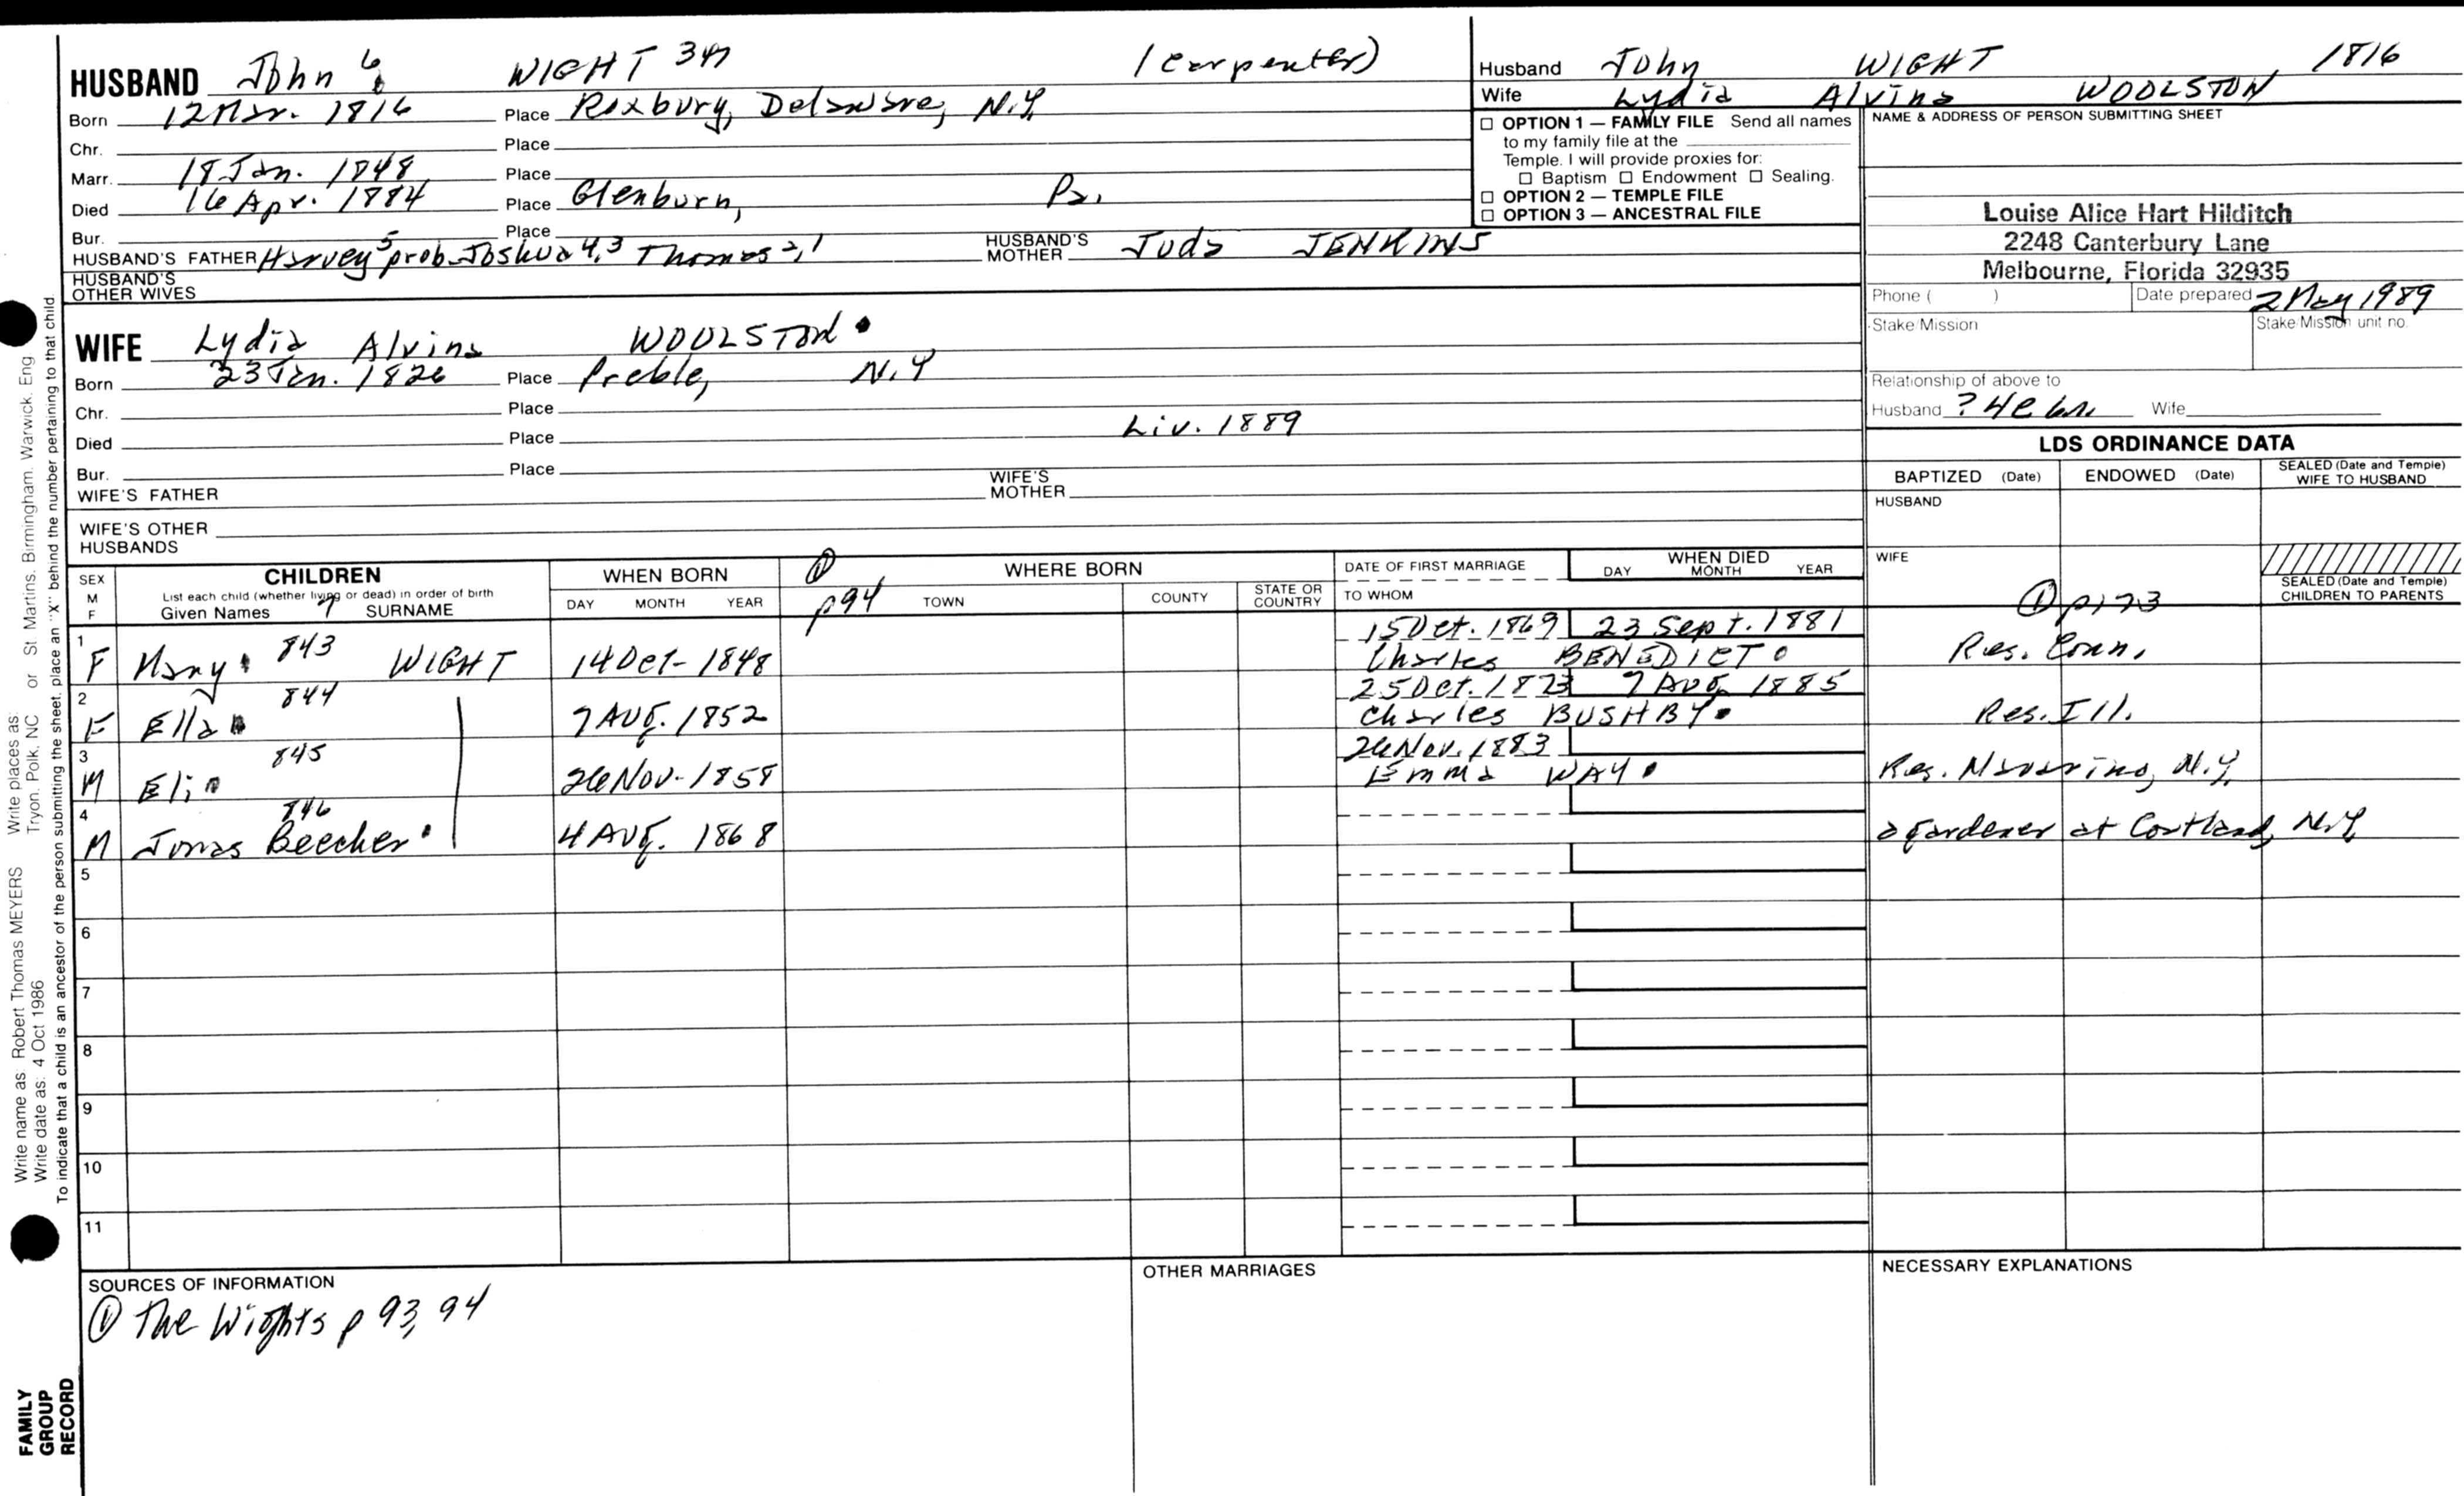 HUSBAND John 6 WIGHT 341 (carpenter)
Born 12 Mar. 1816 Place Roxbury, Delaware, N.Y.
Chr. Place
Marr. 18 Jan. 1848 Place
Died 16 Apr. 1884 Place Glenburn, Pa.
Bur. Place
HUSBAND'S FATHER Harvey 5 prob. Joshua 4,3 Thomas 2,1 HUSBAND'S MOTHER Juda JENKINS
HUSBAND'S OTHER WIVES
WIFE Lydia Alvina WOOLSTON
Born 23 Jan. 1826 Place Preble, N.Y
Chr. Place
Died Place Liv. 1889
Bur. Place
WIFE'S FATHER WIFE'S MOTHER
WIFE'S OTHER HUSBANDS
Husband John WIGHT 1816
Wife Lydia Alvina WOOLSTON
☐ OPTION 1 — FAMILY FILE Send all names
to my family file at the
Temple. I will provide proxies for:
☐ Baptism ☐ Endowment ☐ Sealing.
☐ OPTION 2 — TEMPLE FILE
☐ OPTION 3 — ANCESTRAL FILE
NAME & ADDRESS OF PERSON SUBMITTING SHEET
Louise Alice Hart Hilditch
2248 Canterbury Lane
Melbourne, Florida 32935
Phone ( ) Date prepared 2 May 1989
Stake/Mission Stake/Mission unit no.
Relationship of above to
Husband ? Wife
LDS ORDINANCE DATA
BAPTIZED (Date) ENDOWED (Date) SEALED (Date and Temple) WIFE TO HUSBAND
HUSBAND
WIFE
SEALED (Date and Temple) CHILDREN TO PARENTS
① p173
SEX M F
CHILDREN
List each child (whether living or dead) in order of birth
Given Names 7 SURNAME
WHEN BORN
DAY MONTH YEAR
① p94
WHERE BORN
TOWN COUNTY STATE OR COUNTRY
DATE OF FIRST MARRIAGE
TO WHOM
WHEN DIED
DAY MONTH YEAR
1 843 15 Oct. 1869 23 Sept. 1881
F Mary WIGHT 14 Oct- 1848 Charles BENEDICT Res. Conn.
2 844 25 Oct. 1873 7 Aug. 1885
F Ella 7 Aug. 1852 Charles BUSHBY Res. Ill.
3 845 26 Nov. 1883
M Eli 26 Nov- 1858 Emma WAY Res. N.Y.
4 846
M Jonas Beecher 4 Aug. 1868 a gardener at Cortland, N.Y
5
6
7
8
9
10
11
SOURCES OF INFORMATION
① The Wights p 93, 94
OTHER MARRIAGES
NECESSARY EXPLANATIONS
Write name as: Robert Thomas MEYERS Write places as: Tryon, Polk, NC or St Martins, Birmingham, Warwick, Eng
Write date as: 4 Oct 1986
To indicate that a child is an ancestor of the person submitting the sheet, place an "X" behind the number pertaining to that child.
FAMILY
GROUP
RECORD